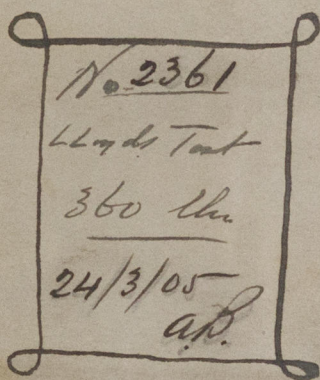 No. 2361
LLoyds Test
360 lbs.
24/3/05
A.B.